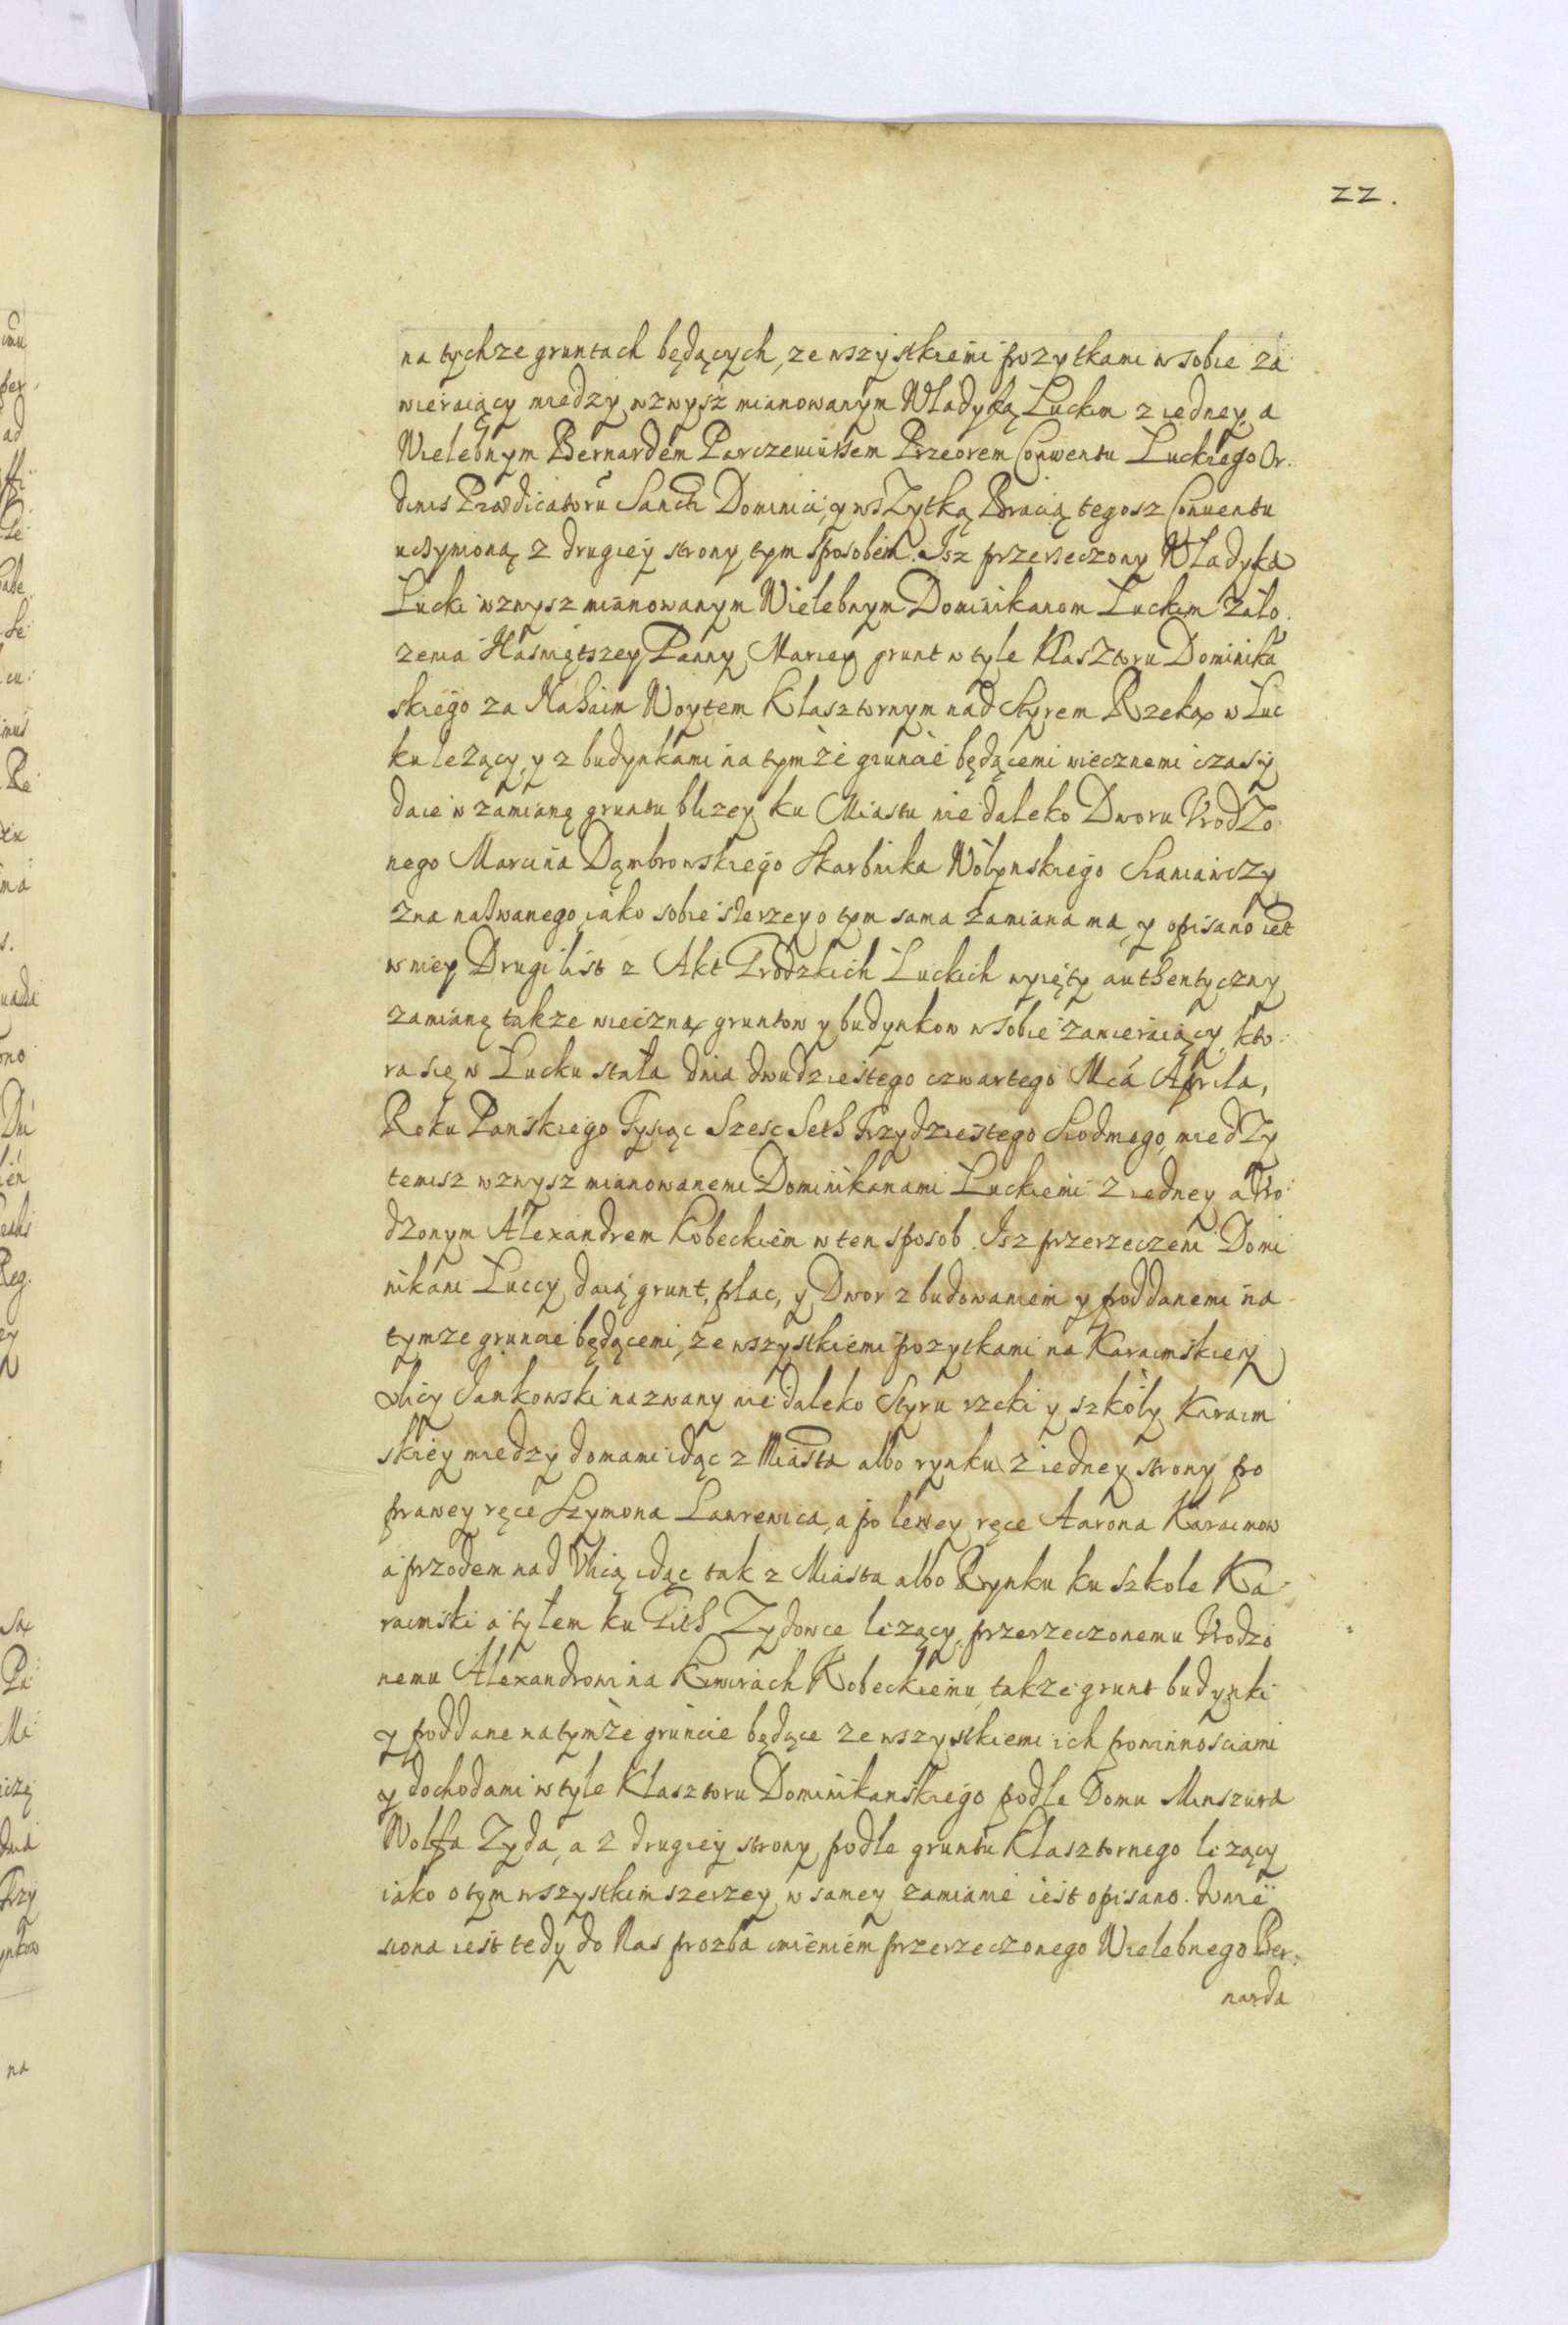 22.
na tychze gruntach będących, ze wszystkiemi pozytkami w sobie za
wieraiący miedzy wzwysz mianowanym Władyką Luckim z iedney, a
Wielebnym Bernardem Przeorem Conwentu Luckiego Or.
dinis Prædicatorũ Sancti Dominici, y wszytką Bracią tegosz Conuentu
uczynioną z drugiey strony tym sposobem. Isz przerzeczony Władyka
Lucki wzwysz mianowanym Wielebnym Dominikanom Luckim zało
zenia Naswiętszey Panny Mariey grunt w tyle Klasztoru Dominika
skiego za Woytem Klasztornym nad Styrem Rzeką w Luc
ku lezący, y z budynkami na tymze gruncie będącemi wiecznemi czasy
daie w zamianę gruntu blizey ku Miastu nie daleko Dworu Vrodzo
nego Marcina Dąmbrowskiego Skarbnika Wołynskiego
zna nazwanego, iako sobie szerzey o tym sama zamiana ma, y opisano iest
w niey Drugi list z Akt Grodzkich Luckich wyięty authentyczny
zamianę takze wieczną gruntow y budynkow w sobie zawieraiący, kto
ra się w Lucku stała dnia dwudziestego czwartego Mca Aprila,
Roku Panskiego Tysiąc Szesc Seth Trzydziestego Siodmego, miedzy
temisz wzwysz mianowanemi Dominikanami Luckiemi z iedney a Vro
dzonym Alexandrem Kobeckiem w ten sposob. Isz przerzeczeni Domi
nikani Luccy daią grunt, plac, y Dwor z budowaniem y poddanemi na
tymze gruncie będącemi, ze wszystkiemi pozytkami na Karaimskiey
vlicy Jankowski nazwany nie daleko Styru rzeki y szkoły Karaim
skiey miedzy domami idąc z Miasta albo rynku z iedney strony po
prawey ręce Szymona Lawrenica, a po lewey ręce Aarona Karaimow
a przodem nad Vlicą idąc tak z Miasta albo Rynku ku szkole Ka
raimski a tyłem ku Zydowce lezący, przerzeczonemu Vrodzo
nemu Alexandrowi na Kiwirach Kobeckiemu, takze grunt budynki
y poddane na tymze gruncie będące ze wszystkiemi ich powinnosciami
y dochodami w tyle Klasztoru Dominikanskiego podle Domu Minszura
Wolfa Zyda, a z drugiey strony podle gruntu Klasztornego lezący
iako o tym wszystkim szerzey w samey zamianie iest opisano. Wnie
siona iest tedy do Nas prozba imieniem przerzeczonego Wielebnego Ber:
narda